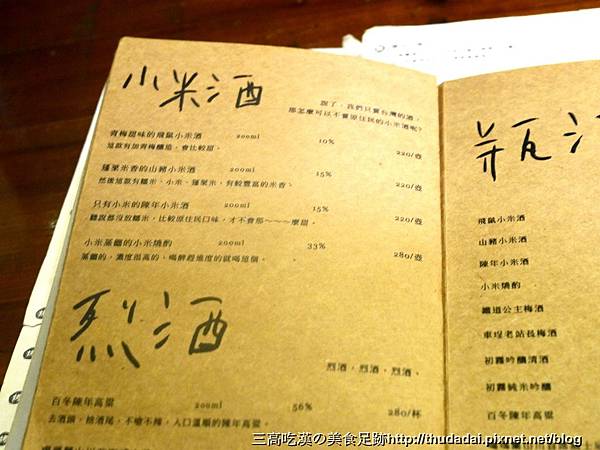 小米酒
說了，我們只賣台灣的酒，
那怎麼可以不賣原住民的小米酒呢?
青梅甜味的飛鼠小米酒 200ml 10% 220/壺
這款有加青梅釀造，會比較甜。
蓬萊米香的山豬小米酒 200ml 15% 220/壺
然後這款有糯米、小米、蓬萊米，有較豐富的米香。
只有小米的陳年小米酒 200ml 15% 220/壺
聽說都沒放糯米，比較原住民口味，才不會那～～～麼甜。
小米蒸餾的小米燒酌 200ml 33% 280/壺
蒸餾的，濃度很高的，喝醉趕進度的就喝這個。
烈酒
烈酒，烈酒，烈酒、
百冬陳年高粱 200ml 56% 280/杯
去酒頭，捨酒尾，不嗆不辣，入口溫順的陳年高粱。
瓶酒
飛鼠小米酒
山豬小米酒
陳年小米酒
小米燒酌
鐵道公主梅酒
車埕老站長梅酒
初霧吟釀清酒
初霧純米吟釀
百冬陳年高粱
三高吃漢の美食足跡http://thudadai.pixnet.net/blog